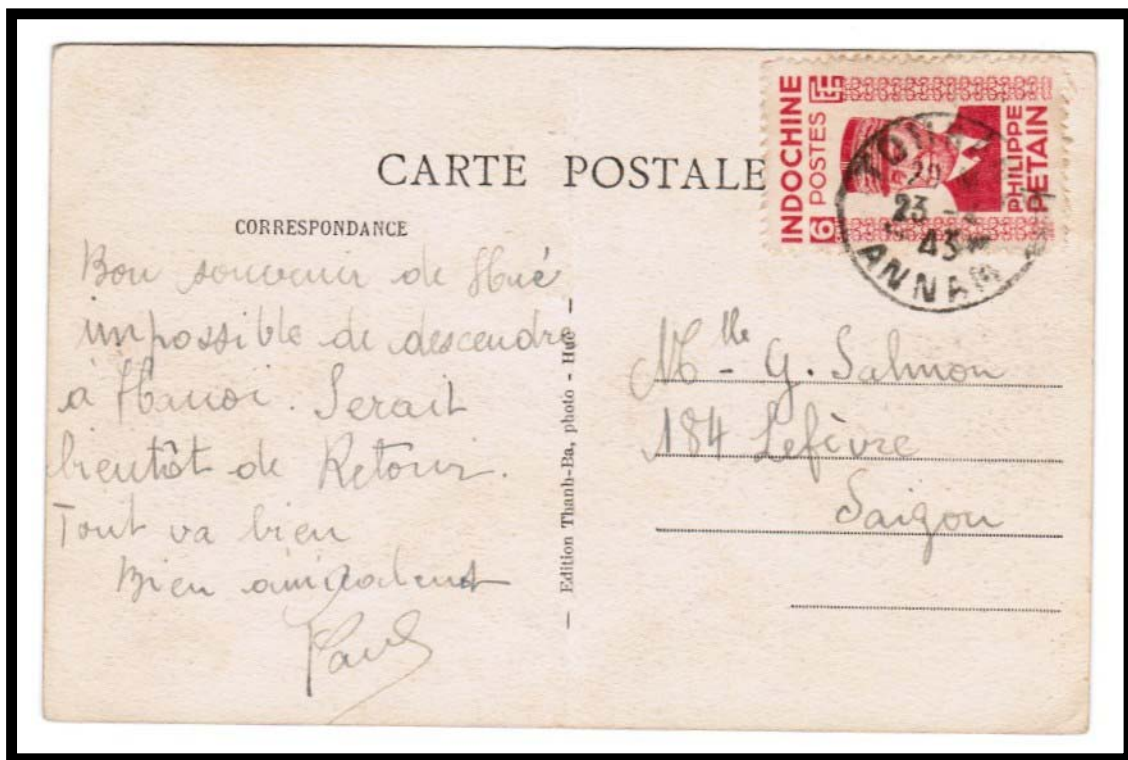 CARTE POSTALE
CORRESPONDANCE
Bon souvenir de Hué
impossible de descendre
à Hanoï. Serait
bientôt de Retour.
Tout va bien
Bien amicalement
Paul
— Edition Thanh-Ba, photo - Hué —
INDOCHINE
6 POSTES
PHILIPPE
PÉTAIN
23 -
43
ANNAM
Mlle - G. Salmon
184 Lefèvre
Saigon